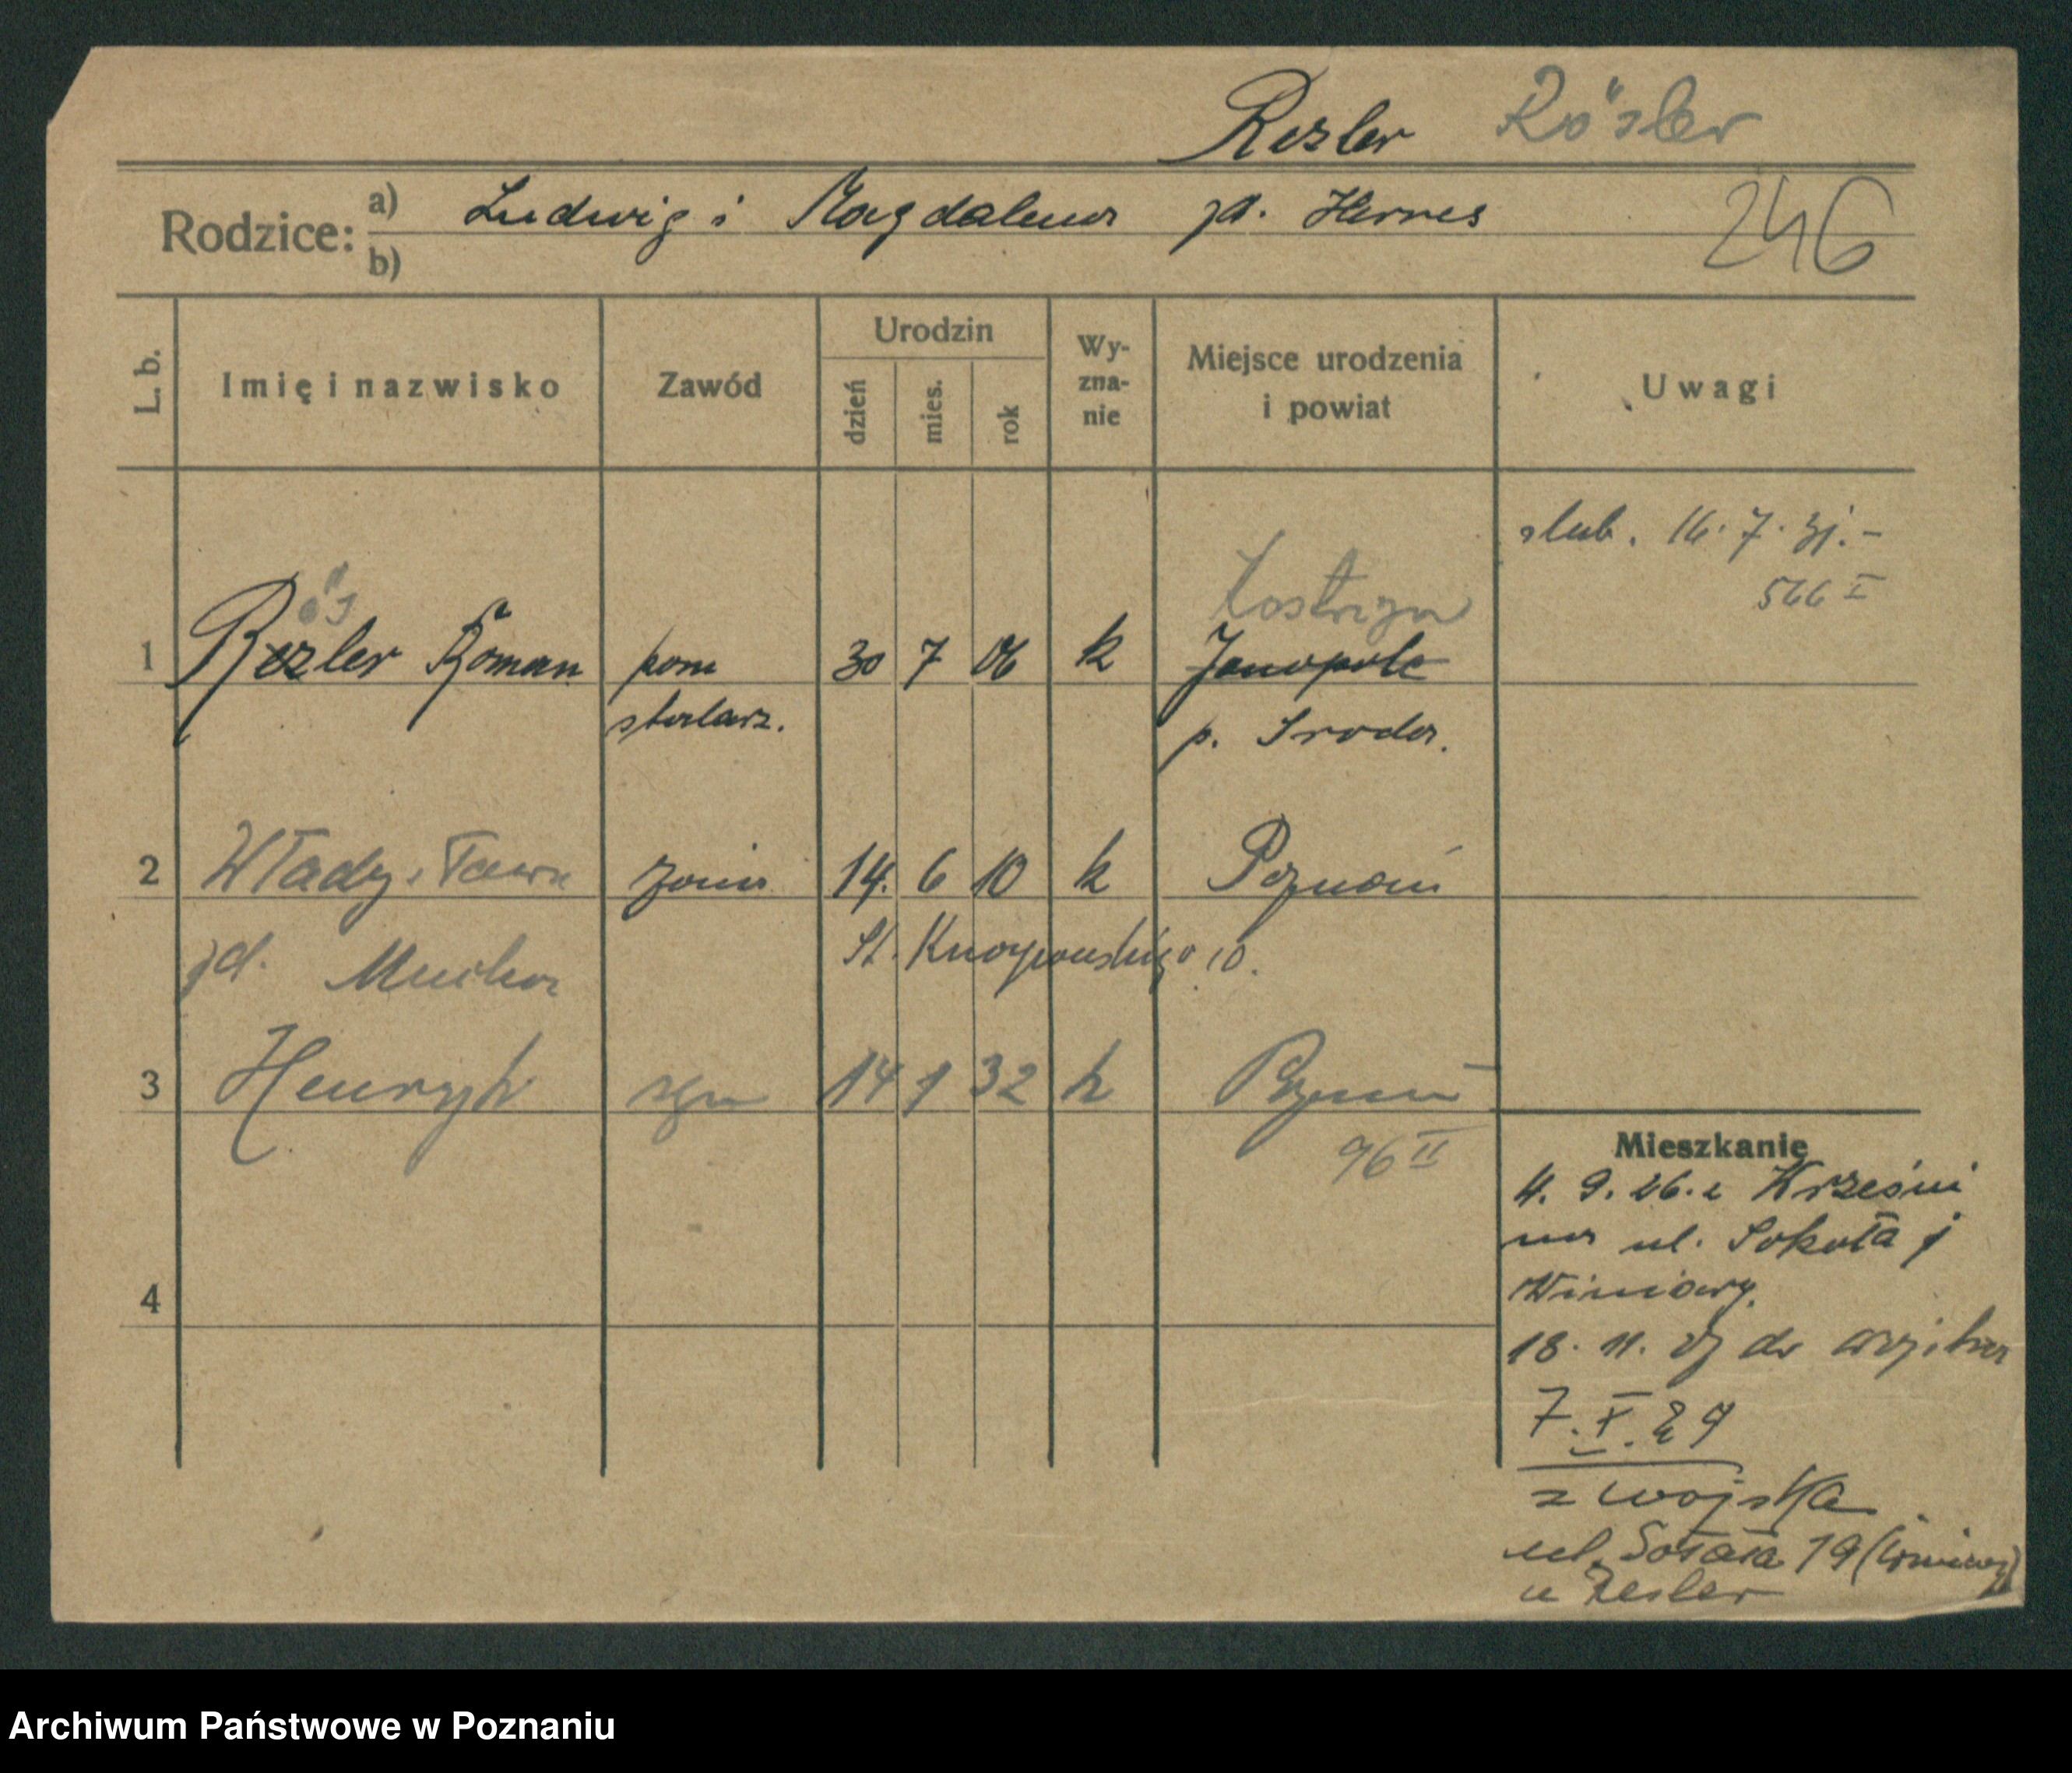 Rezler Rösler
Rodzice: a) Ludwig i Magdalena zd. Hermes
b)
246
L. b. Imię i nazwisko Zawód Urodzin dzień mies. rok Wyznanie Miejsce urodzenia i powiat Uwagi
ślub. 16. 7. 31.-
566 I
ös Kostrzyn
1 Rezler Roman pom 30 7 06 k Janopole
stolarz. p. Sroda.
2 Władysława żona 14. 6 10 k Poznań
zd. Mucha St. Knapowskiego 10.
3 Henryk syn 14 1 32 k Poznań
96 II
4
Mieszkanie
4. 9. 26. z Krzesin
na ul. Sokoła
Winiary.
18. 11. 27 do wojska
7. X. 29
z wojska
ul. 19 (Winiary)
u Rezler
Archiwum Państwowe w Poznaniu